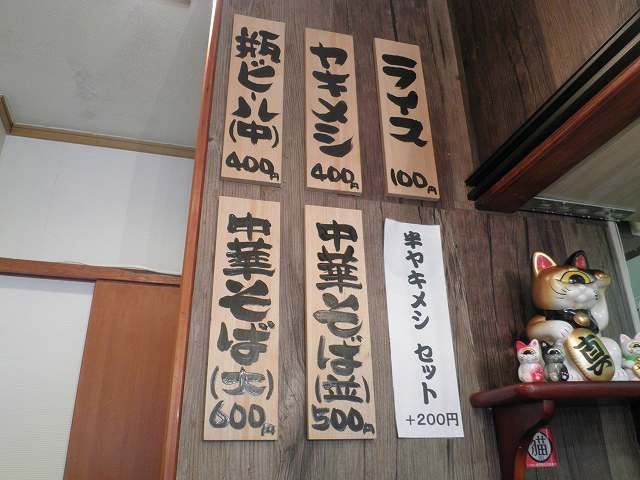 ライス
100円
ヤキメシ
400円
瓶ビール(中)
400円
半ヤキメシ セット
+200円
中華そば(並)
500円
中華そば(大)
600円
猫